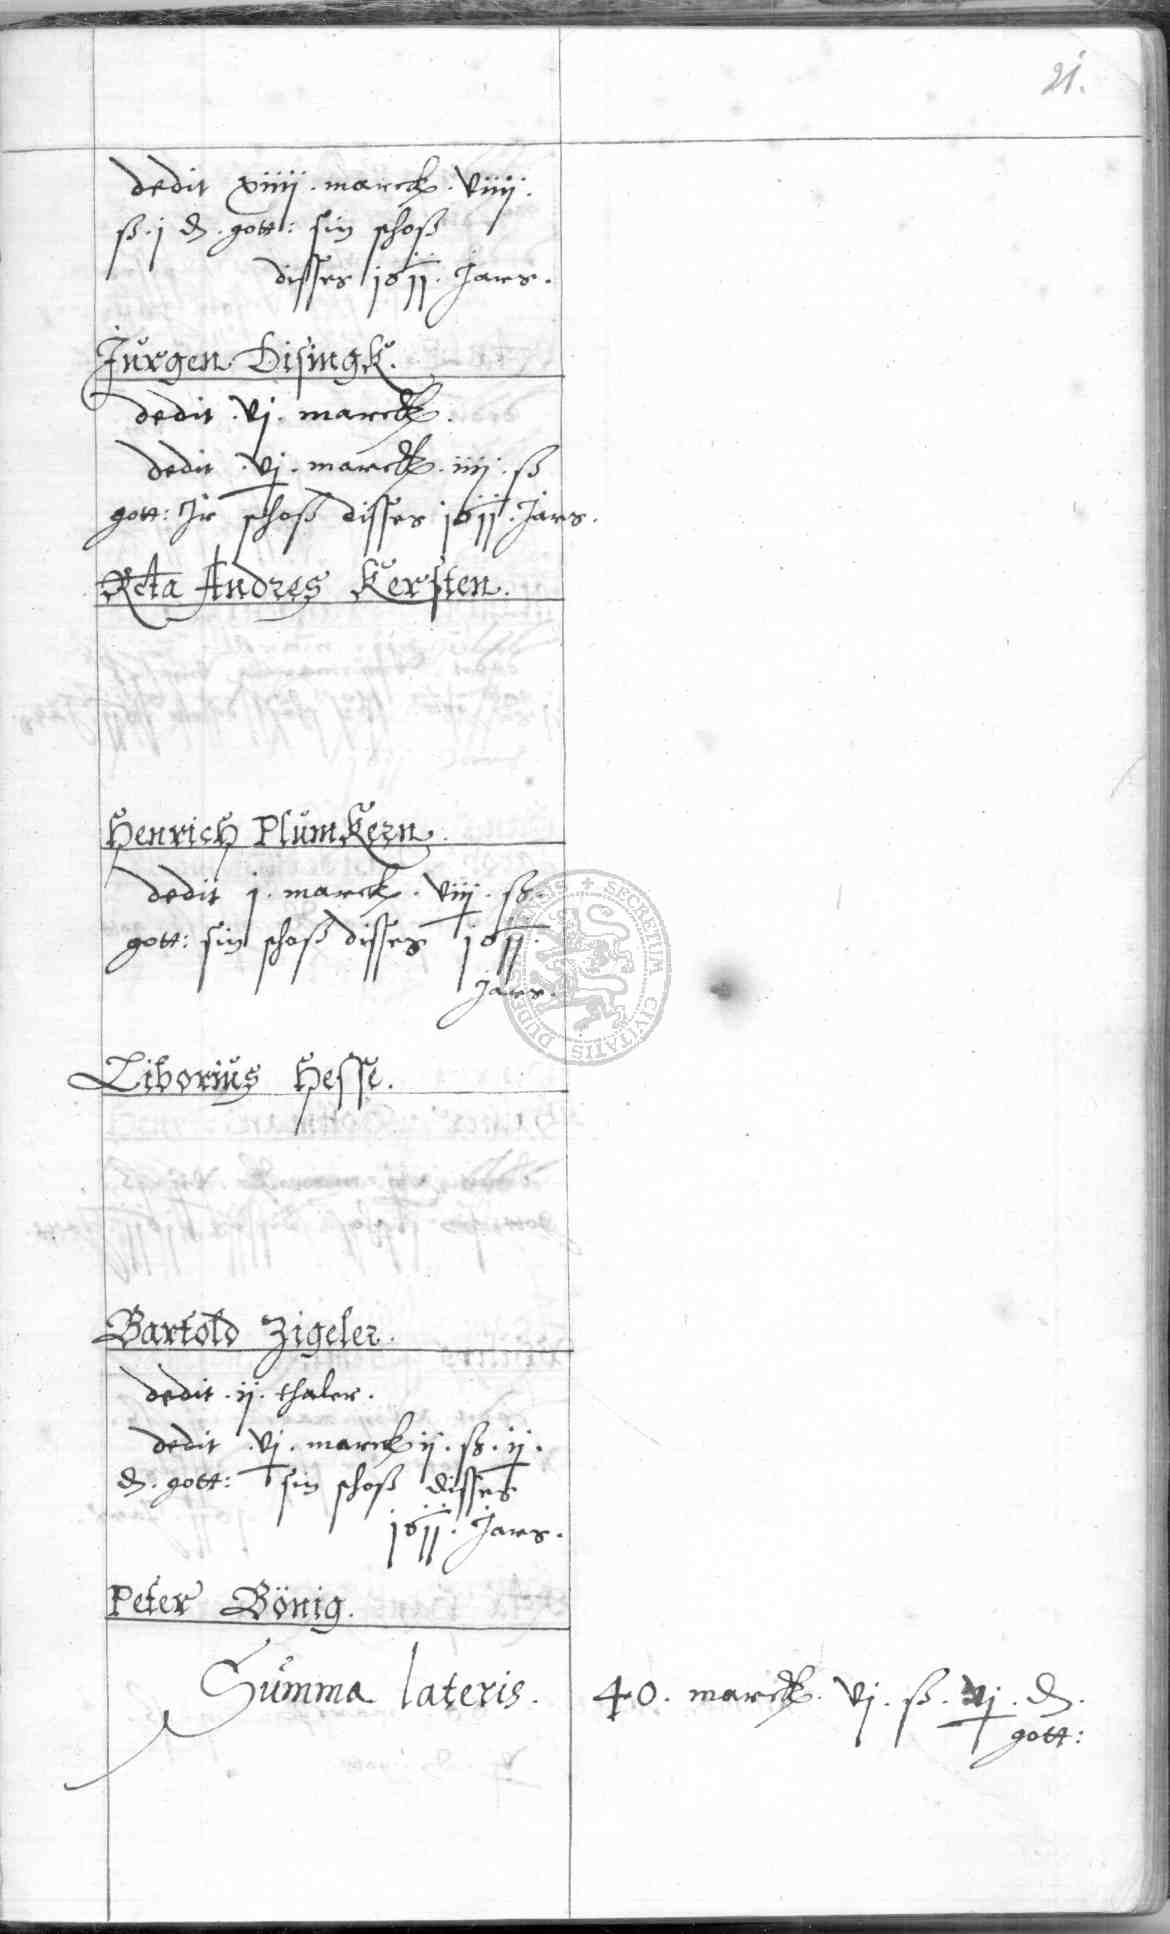 21.
dedit xiiij. marck. viiij.
ß. j d. gott: sin schoß
disses 1611. Jars.
Jürgen Bisingk.
dedit. vj. marck.
dedit. vj. marck. iiij. ß
gott: Ir schoß disses 1611. Jars.
Rcta Andres Kersten.
Henrich Plümkern.
dedit j. marck. viij. ß.
gott: sin schoß disses 1611.
Jars.
Liborius Hesse.
Bartold Zigeler.
dedit. ij. thaler.
dedit. vj. marck ij. ß. ij.
d. gott: sin schoß disses
1611. Jars.
Peter Bönig.
Summa lateris. 40. marck. vj. ß. vj. d.
gott:
SECRETUM CIVITATIS DUDERSTADENSIS